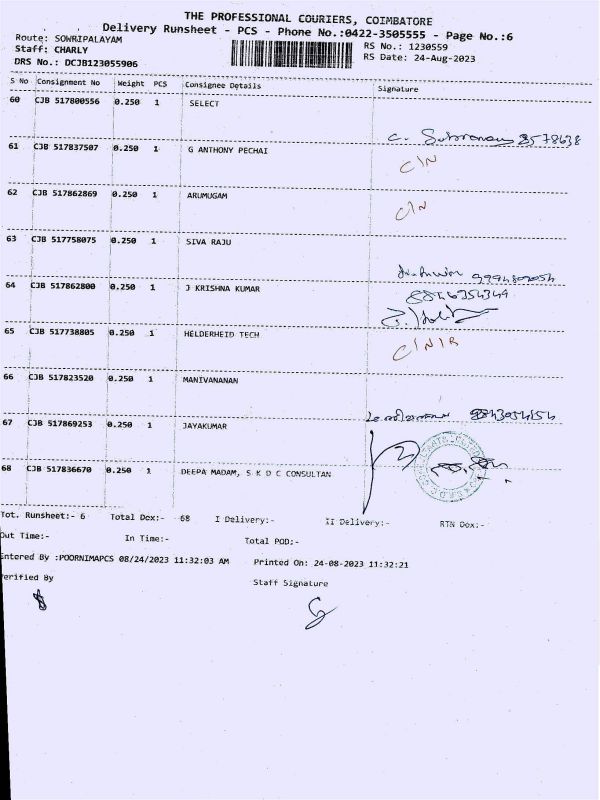 THE PROFESSIONAL COURIERS, COIMBATORE
Delivery Runsheet - PCS - Phone No.:0422-3505555 - Page No.:6
Route: SOWRIPALAYAM
RS No.: 1230559
Staff: CHARLY
RS Date: 24-Aug-2023
DRS No.: DCJB123055906
S No Consignment No Weight PCS Consignee Details Signature
60 CJB 517800556 0.250 1 SELECT
61 CJB 517837507 0.250 1 G ANTHONY PECHAI
C/N
62 CJB 517862869 0.250 1 ARUMUGAM
C/N
63 CJB 517758075 0.250 1 SIVA RAJU
64 CJB 517862800 0.250 1 J KRISHNA KUMAR
65 CJB 517738805 0.250 1 HELDERHEID TECH
C/N/R
66 CJB 517823520 0.250 1 MANIVANANAN
67 CJB 517869253 0.250 1 JAYAKUMAR
68 CJB 517836670 0.250 1 DEEPA MADAM, S K D C CONSULTAN
Tot. Runsheet:- 6 Total Dox:- 68 I Delivery:- II Delivery:- RTN Dox:-
Out Time:- In Time:- Total POD:-
Entered By :POORNIMAPCS 08/24/2023 11:32:03 AM Printed On: 24-08-2023 11:32:21
Verified By Staff Signature